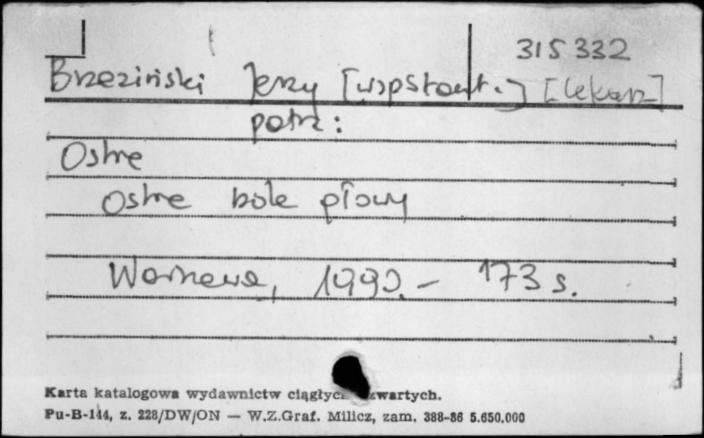 315332
Brzeziński Jerzy [współaut.] [lekarz]
patrz:
Ostre
Ostre bóle głowy
Warszawa, 1990. - 173 s.
Karta katalogowa wydawnictw ciągłych zwartych.
Pu-B-144, z. 228/DW/ON — W.Z.Graf. Milicz, zam. 388-86 5.650.000